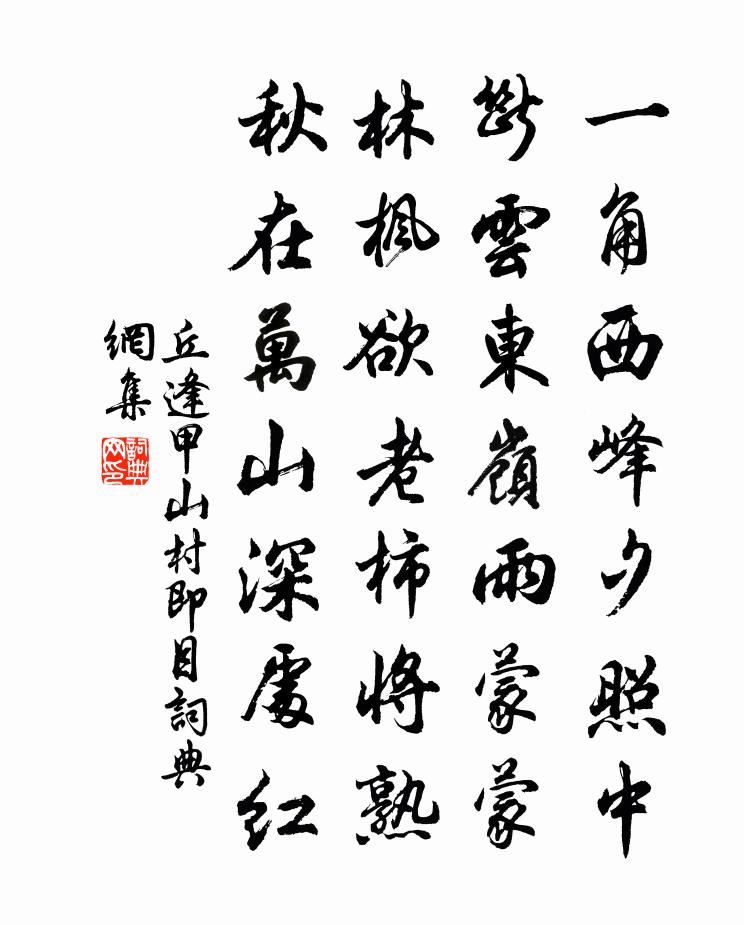 一角西峰夕照中
斷雲東嶺雨蒙蒙
林楓欲老柿將熟
秋在萬山深處紅
丘逢甲山村即目詞典
網集
詞典
网印